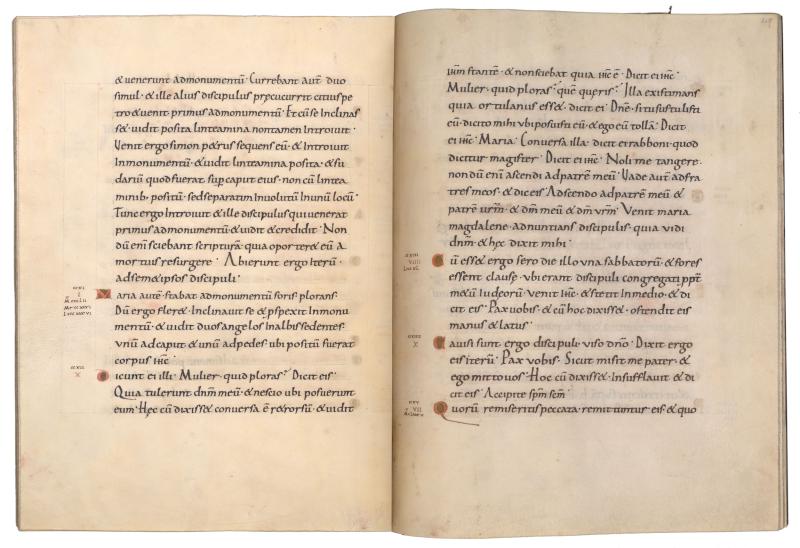 & venerunt ad monumentū · Currebant autē duo
simul · & ille alius discipulus precucurrit citius pe
tro & venit primus ad monumentū · Et cū se inclinas
s& · uidit posita linteamina non tamen introiuit ·
Venit ergo simon p&rus sequens eū · & introiuit
in monumentū · & uidit linteamina posita · & su
dariū quod fuerat sup caput eius · non cū lintea
minib; positū · sed separatim inuolutū in unū locū ·
Tunc ergo introiuit & ille discipulus qui uenerat
primus ad monumentū · & uidit & credidit · Non
dū enī sciebant scripturā · quia oporter& eū a
mortuis resurgere · Abierunt ergo iterū ·
ad sem&ipsos discipuli ·
Maria autē · stabat ad monumentū foris plorans ·
Dū ergo fler& · inclinauit se & pspexit in monu
mentū · & uidit duos angelos in albis sedentes ·
unū ad caput & unū ad pedes · ubi positū fuerat
corpus ihc ·
Dicunt ei illi · Mulier · quid ploras? Dicit eis ·
Quia tulerunt dnm meū · & nescio ubi posuerunt
eum · Hęc cū dixiss& conuersa ē r&rorsū · & uidit
ihm stantē · & non sciebat quia ihc ē · Dicit ei ihc ·
Mulier · quid ploras? quē queris? Illa existimans
quia ortulanus ess& · dicit ei · Dne · si tu sustulisti
eū · dicito mihi ubi posuisti eū · & ego eū tollā · Dicit
ei ihc · Maria · Conuersa illa · dicit ei rabboni · quod
dicitur magister · Dicit ei ihc · Noli me tangere ·
non dū enī ascendi ad patrē meū · Uade autē ad fra
tres meos · & dic eis · Adscendo ad patrē meū &
patrē urm · & dm meū & dm urm · Venit maria
magdalene · adnuntians discipulis · quia uidi
dnm · & hęc dixit mihi ·
Cū ess& ergo sero die illo una sabbatorū · & fores
essent clausę · ubi erant discipuli congregati ppt
m&ū iudeorū · uenit ihc · & st&it in medio · & di
cit eis · Pax uobis · & cū hoc dixiss& · ostendit eis
manus & latus ·
Gauisi sunt ergo discipuli uiso dno · Dixit ergo
eis iterū · Pax uobis · Sicut misit me pater · &
ego mitto uos · Hoc cū dixiss& · insufflauit & di
cit eis · Accipite spm scm ·
Quorū remiseritis peccata · remittuntur eis · & quo